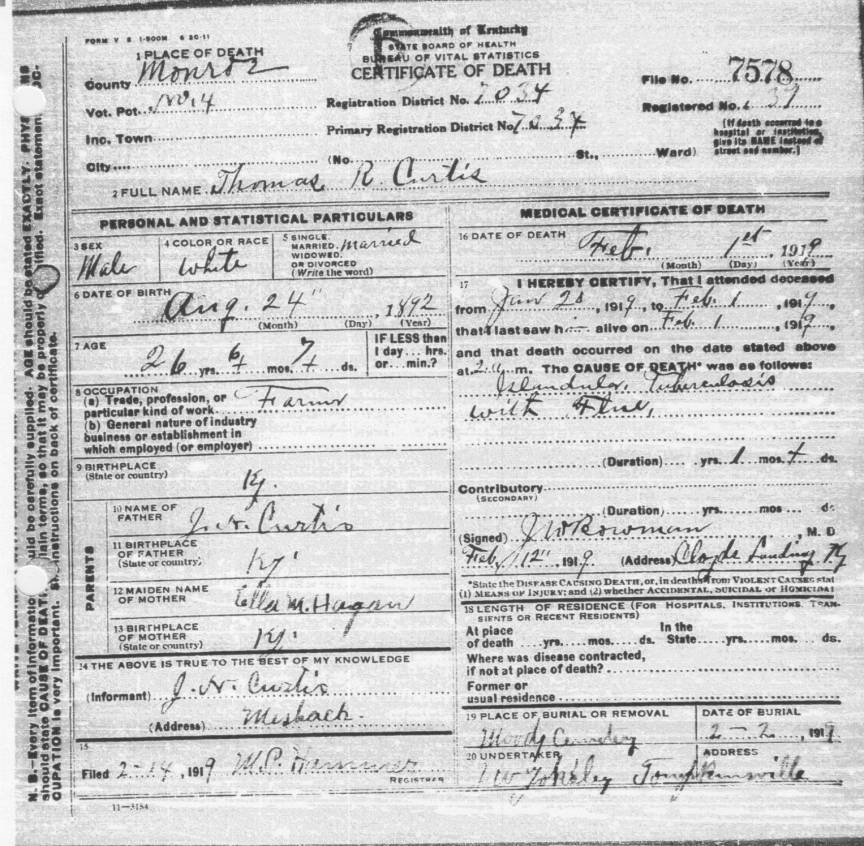 FORM V S 1-500M 6 20-11
Commonwealth of Kentucky
STATE BOARD OF HEALTH
BUREAU OF VITAL STATISTICS
CERTIFICATE OF DEATH
1 PLACE OF DEATH
County Monroe
Vot. Pct. No. 4
Inc. Town
City
Registration District No. 7034
Primary Registration District No. 7034
(No. St., Ward)
File No. 7578
Registered No. 39
(If death occurred in a hospital or institution, give its NAME instead of street and number.)
2 FULL NAME Thomas R. Curtis
PERSONAL AND STATISTICAL PARTICULARS
3 SEX
Male
4 COLOR OR RACE
White
5 SINGLE, MARRIED, WIDOWED, OR DIVORCED (Write the word)
married
6 DATE OF BIRTH
Aug. 24" 1892
(Month) (Day) (Year)
7 AGE
26 yrs. mos. ds.
IF LESS than
1 day... hrs.
or... min.?
8 OCCUPATION
(a) Trade, profession, or
particular kind of work Farmer
(b) General nature of industry
business or establishment in
which employed (or employer)
9 BIRTHPLACE
(State or country)
Ky.
PARENTS
10 NAME OF
FATHER
Curtis
11 BIRTHPLACE
OF FATHER
(State or country)
Ky.
12 MAIDEN NAME
OF MOTHER
Ella M. Hagan
13 BIRTHPLACE
OF MOTHER
(State or country)
Ky.
14 THE ABOVE IS TRUE TO THE BEST OF MY KNOWLEDGE
(Informant) Curtis
(Address)
15
Filed 2-14, 1919 M.P.
REGISTRAR
11-3184
MEDICAL CERTIFICATE OF DEATH
16 DATE OF DEATH
Feb. 1st 1919
(Month) (Day) (Year)
17 I HEREBY CERTIFY, That I attended deceased
from Jan 28, 1919, to Feb. 1, 1919,
that I last saw him alive on Feb. 1, 1919,
and that death occurred on the date stated above
at 2 a m. The CAUSE OF DEATH* was as follows:
Tuberculosis
with Flue,
(Duration) yrs. 1 mos. 4 ds.
Contributory
(SECONDARY)
(Duration) yrs. mos. ds.
(Signed) J W Bowman, M. D
Feb, 12", 1919 (Address) Landing Ky
*State the DISEASE CAUSING DEATH, or, in deaths from VIOLENT CAUSES stat
(1) MEANS OF INJURY; and (2) whether ACCIDENTAL, SUICIDAL or HOMICIDAL
18 LENGTH OF RESIDENCE (FOR HOSPITALS, INSTITUTIONS, TRAN-
SIENTS OR RECENT RESIDENTS)
At place
of death yrs. mos. ds.
In the
State yrs. mos. ds.
Where was disease contracted,
if not at place of death?
Former or
usual residence
19 PLACE OF BURIAL OR REMOVAL
Moody Cemetery
DATE OF BURIAL
2-2, 1919
20 UNDERTAKER
ADDRESS
Tompkinsville
N. B.—Every item of informatio uld be carefully supplied. AGE should be stated EXACTLY. PHYS
should state CAUSE OF DEATH lain terms, so that it may be properly c ified. Exact statement OC-
CUPATION is very important. S instructions on back of certificate.